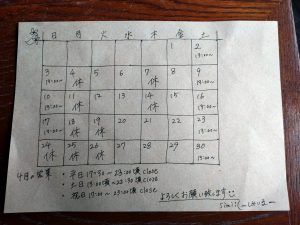 日 月 火 水 木 金 土
1 2
19:00〜
3 4 5 6 7 8 9
19:00〜 休 休 19:00〜
10 11 12 13 14 15 16
19:00〜 休 19:00〜
17 18 19 20 21 22 23
19:00〜 休 休 19:00〜
24 25 26 27 28 29 30
休 休 休 19:00〜
4月の営業 ・平日 17:30〜23:00頃 close
・土日 19:00〜23:30頃 close
・祝日 19:00〜23:00頃 close
よろしくお願い致します